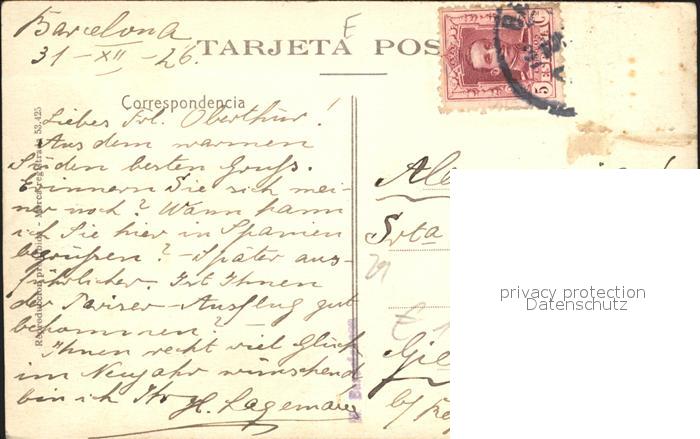 Barcelona
31-XII-26.
E
TARJETA POS
5
Correspondencia
Liebes Frl. Oberthür!
Aus dem warmen
Süden besten Gruß.
Erinnern Sie sich mei-
ner noch? Wann kann
ich Sie hier in Spanien
begrüßen? - Später aus-
führlicher. Ist Ihnen
der Pariser-Ausflug gut
bekommen?
Ihnen recht viel Glück
im Neujahr wünschend
bin ich Ihr H. Lagemann
Reproducción prohibida - Marca registrada 53.425
Srta
29
privacy protection
Datenschutz